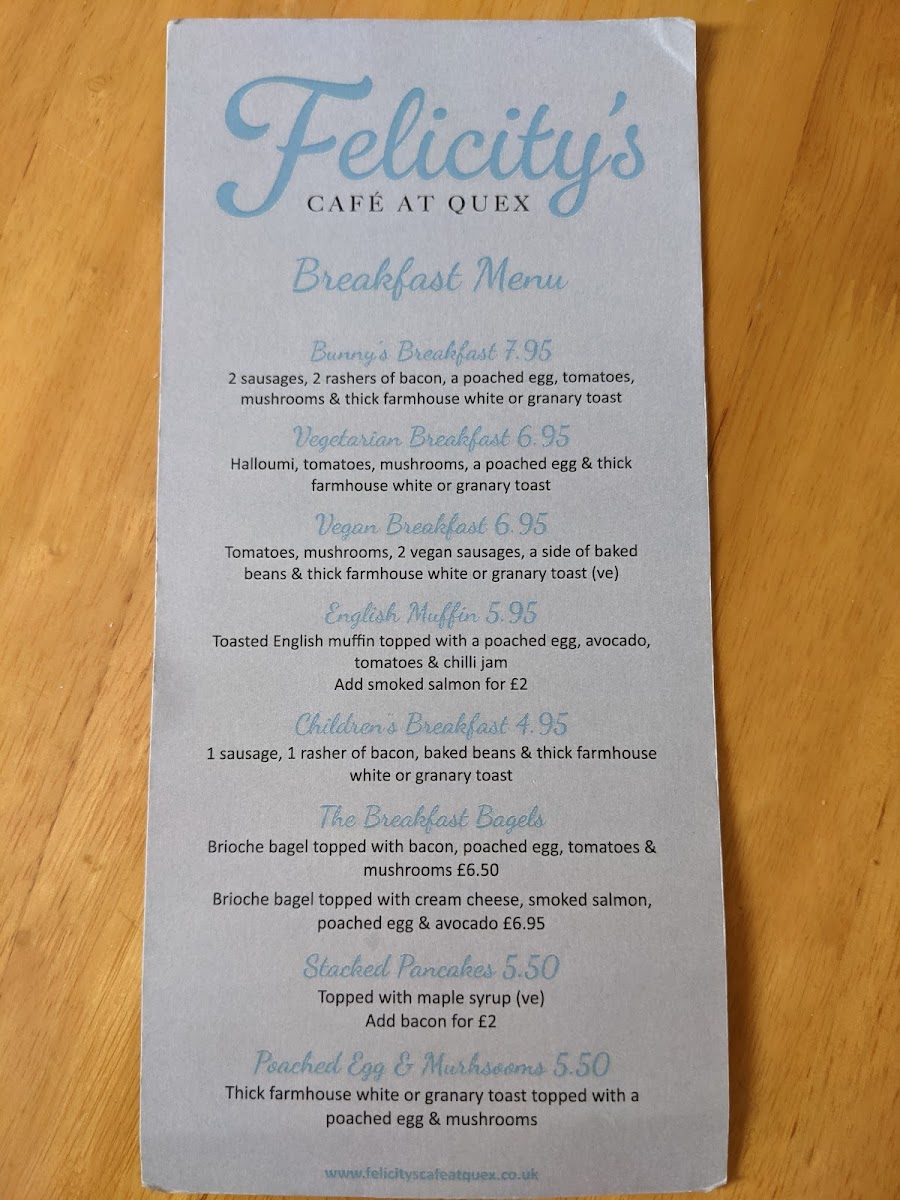 Felicity's
CAFÉ AT QUEX
Breakfast Menu
Bunny's Breakfast 7.95
2 sausages, 2 rashers of bacon, a poached egg, tomatoes,
mushrooms & thick farmhouse white or granary toast
Vegetarian Breakfast 6.95
Halloumi, tomatoes, mushrooms, a poached egg & thick
farmhouse white or granary toast
Vegan Breakfast 6.95
Tomatoes, mushrooms, 2 vegan sausages, a side of baked
beans & thick farmhouse white or granary toast (ve)
English Muffin 5.95
Toasted English muffin topped with a poached egg, avocado,
tomatoes & chilli jam
Add smoked salmon for £2
Children's Breakfast 4.95
1 sausage, 1 rasher of bacon, baked beans & thick farmhouse
white or granary toast
The Breakfast Bagels
Brioche bagel topped with bacon, poached egg, tomatoes &
mushrooms £6.50
Brioche bagel topped with cream cheese, smoked salmon,
poached egg & avocado £6.95
Stacked Pancakes 5.50
Topped with maple syrup (ve)
Add bacon for £2
Poached Egg & Murhsooms 5.50
Thick farmhouse white or granary toast topped with a
poached egg & mushrooms
www.felicityscafeatquex.co.uk